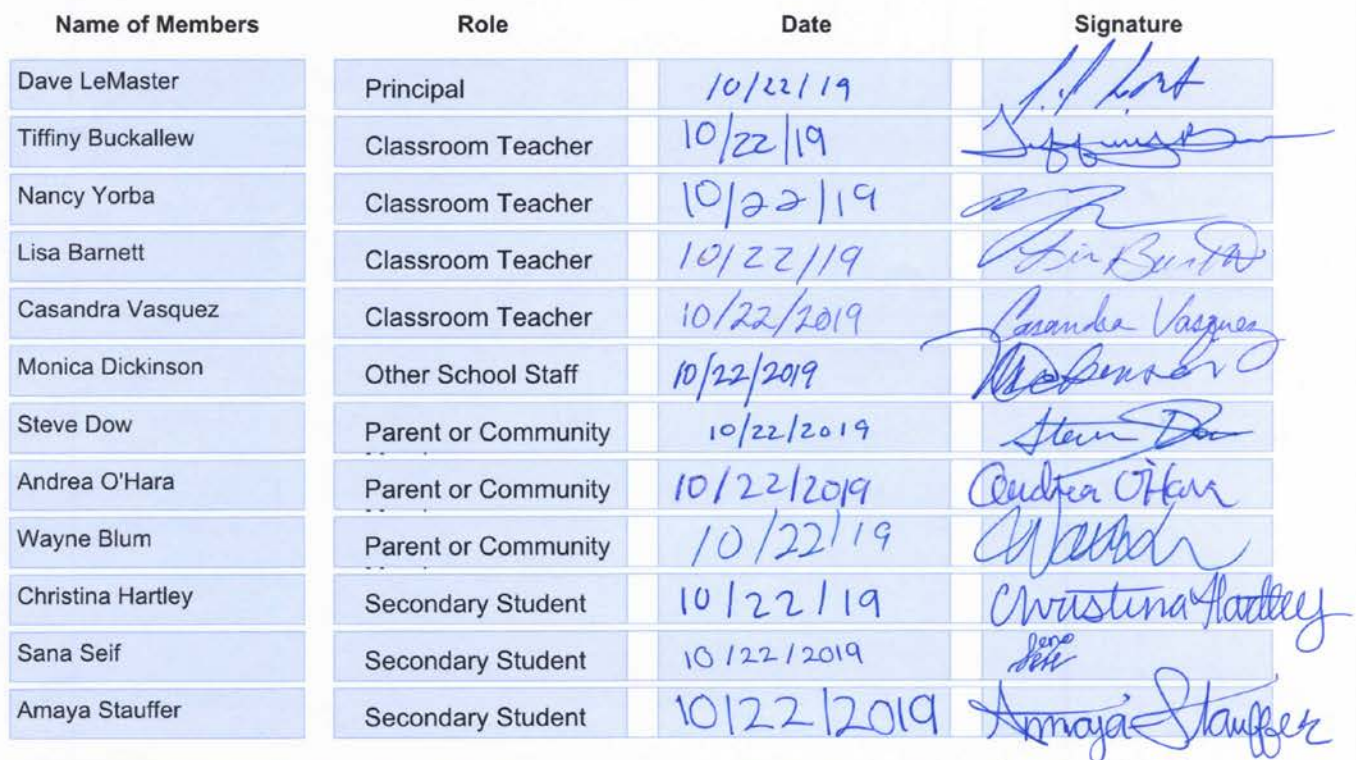 Name of Members Role Date Signature
Dave LeMaster Principal 10/22/19
Tiffiny Buckallew Classroom Teacher 10/22/19
Nancy Yorba Classroom Teacher 10/22/19
Lisa Barnett Classroom Teacher 10/22/19
Casandra Vasquez Classroom Teacher 10/22/2019 Casandra Vasquez
Monica Dickinson Other School Staff 10/22/2019
Steve Dow Parent or Community 10/22/2019
Andrea O'Hara Parent or Community 10/22/2019 Andrea O'Hara
Wayne Blum Parent or Community 10/22/19
Christina Hartley Secondary Student 10/22/19 Christina Hartley
Sana Seif Secondary Student 10/22/2019
Amaya Stauffer Secondary Student 10/22/2019 Amaya Stauffer